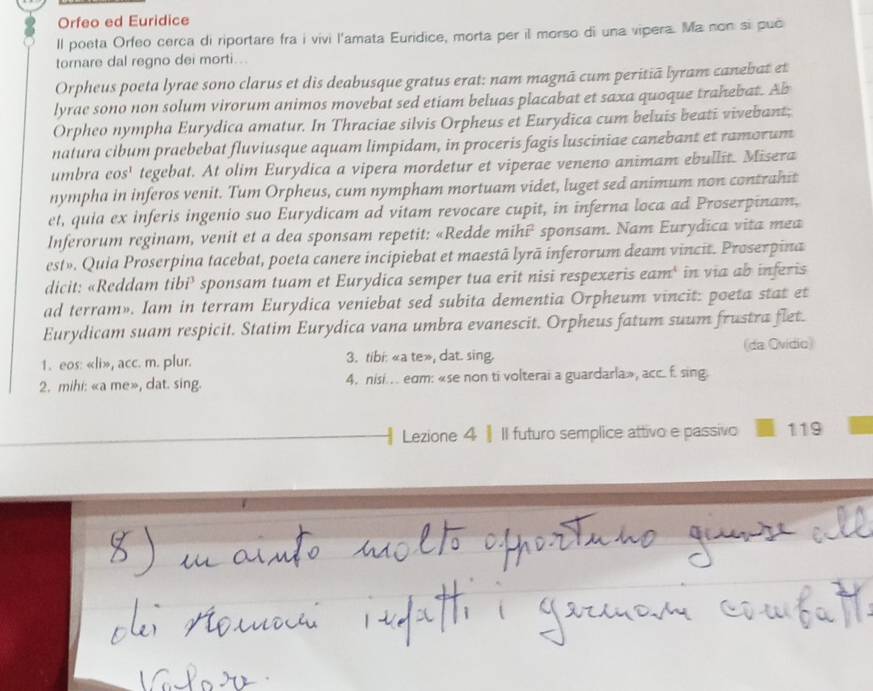 Orfeo ed Euridice
Il poeta Orfeo cerca di riportare fra i vivi l'amata Euridice, morta per il morso di una vipera. Ma non si può
tornare dal regno dei morti...
Orpheus poeta lyrae sono clarus et dis deabusque gratus erat: nam magnā cum peritiā lyram canebat et
lyrae sono non solum virorum animos movebat sed etiam beluas placabat et saxa quoque trahebat. Ab
Orpheo nympha Eurydica amatur. In Thraciae silvis Orpheus et Eurydica cum beluis beati vivebant;
natura cibum praebebat fluviusque aquam limpidam, in proceris fagis lusciniae canebant et ramorum
umbra eos¹ tegebat. At olim Eurydica a vipera mordetur et viperae veneno animam ebullit. Misera
nympha in inferos venit. Tum Orpheus, cum nympham mortuam videt, luget sed animum non contrahit
et, quia ex inferis ingenio suo Eurydicam ad vitam revocare cupit, in inferna loca ad Proserpinam,
Inferorum reginam, venit et a dea sponsam repetit: «Redde mihi² sponsam. Nam Eurydica vita mea
est». Quia Proserpina tacebat, poeta canere incipiebat et maestā lyrā inferorum deam vincit. Proserpina
dicit: «Reddam tibi³ sponsam tuam et Eurydica semper tua erit nisi respexeris eam⁴ in via ab inferis
ad terram». Iam in terram Eurydica veniebat sed subita dementia Orpheum vincit: poeta stat et
Eurydicam suam respicit. Statim Eurydica vana umbra evanescit. Orpheus fatum suum frustra flet.
(da Ovidio)
1. eos: «li», acc. m. plur.
2. mihi: «a me», dat. sing.
3. tibi: «a te», dat. sing.
4. nisi... eam: «se non ti volterai a guardarla», acc. f. sing.
Lezione 4 Il futuro semplice attivo e passivo 119
8) un aiuto molto opportuno giunse all
dei romani infatti i germani combatt
Valore.